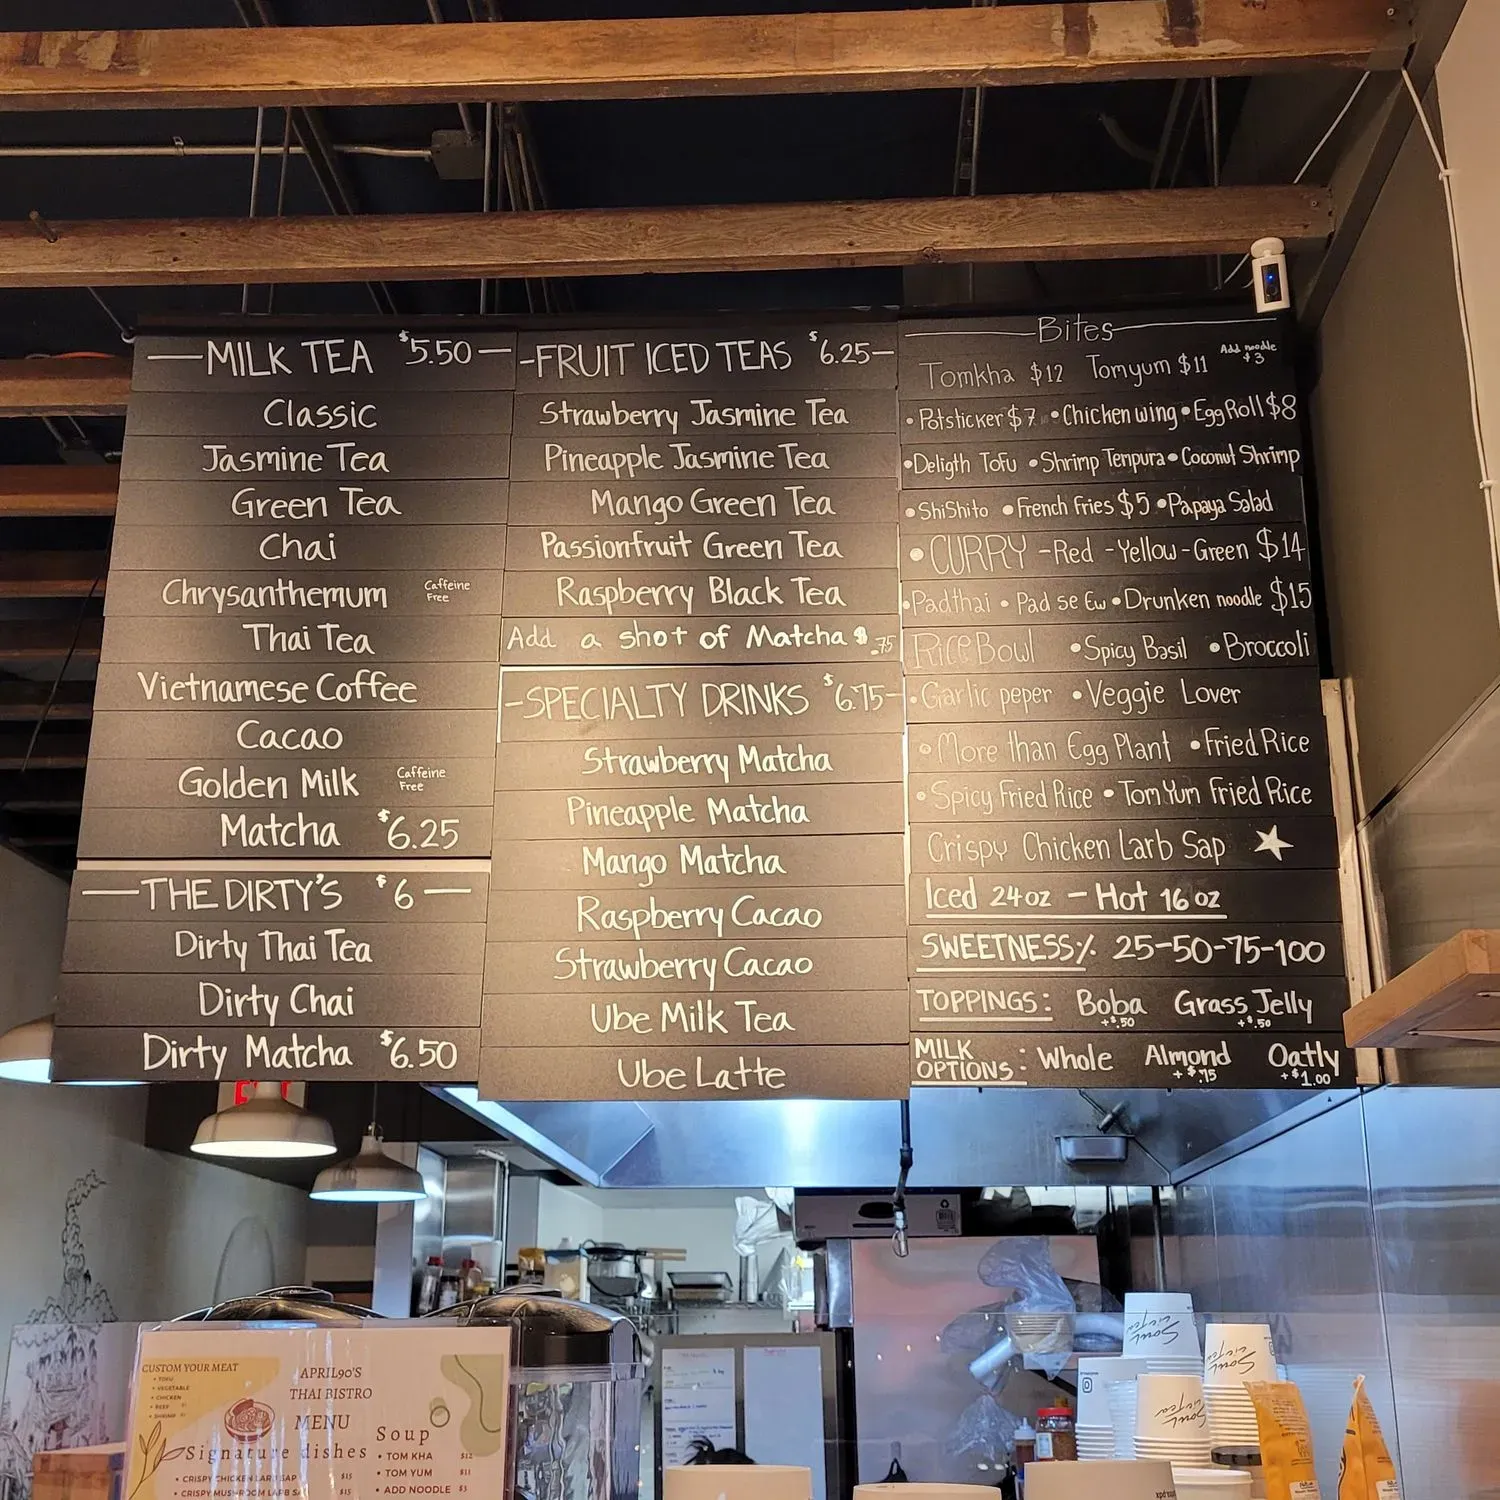 MILK TEA $5.50
Classic
Jasmine Tea
Green Tea
Chai
Chrysanthemum Caffeine Free
Thai Tea
Vietnamese Coffee
Cacao
Golden Milk Caffeine Free
Matcha $6.25
THE DIRTY'S $6
Dirty Thai Tea
Dirty Chai
Dirty Matcha $6.50
-FRUIT ICED TEAS $6.25-
Strawberry Jasmine Tea
Pineapple Jasmine Tea
Mango Green Tea
Passionfruit Green Tea
Raspberry Black Tea
Add a shot of Matcha $.75
-SPECIALTY DRINKS $6.75-
Strawberry Matcha
Pineapple Matcha
Mango Matcha
Raspberry Cacao
Strawberry Cacao
Ube Milk Tea
Ube Latte
Bites
Tomkha $12 Tomyum $11 Add noodle $3
• Potsticker $7 • Chicken wing • Egg Roll $8
• Deligth Tofu • Shrimp Tempura • Coconut Shrimp
• ShiShito • French fries $5 • Papaya Salad
• CURRY -Red -Yellow -Green $14
• Padthai • Pad se Ew • Drunken noodle $15
Rice Bowl • Spicy Basil • Broccoli
• Garlic peper • Veggie Lover
• More than Egg Plant • Fried Rice
• Spicy Fried Rice • Tom Yum Fried Rice
Crispy Chicken Larb Sap
Iced 24oz - Hot 16oz
SWEETNESS% 25-50-75-100
TOPPINGS: Boba +$.50 Grass Jelly +$.50
MILK OPTIONS: Whole Almond +$.75 Oatly +$1.00
CUSTOM YOUR MEAT
• TOFU
• VEGETABLE
• CHICKEN
• BEEF
• SHRIMP
APRIL90'S
THAI BISTRO
MENU
Signature dishes
• CRISPY CHICKEN LARB SAP $15
• CRISPY MUSHROOM LARB SA $15
Soup
• TOM KHA $12
• TOM YUM $11
• ADD NOODLE $3
Soul
Lifetea
Soul
Lifetea
Soul
Lifetea